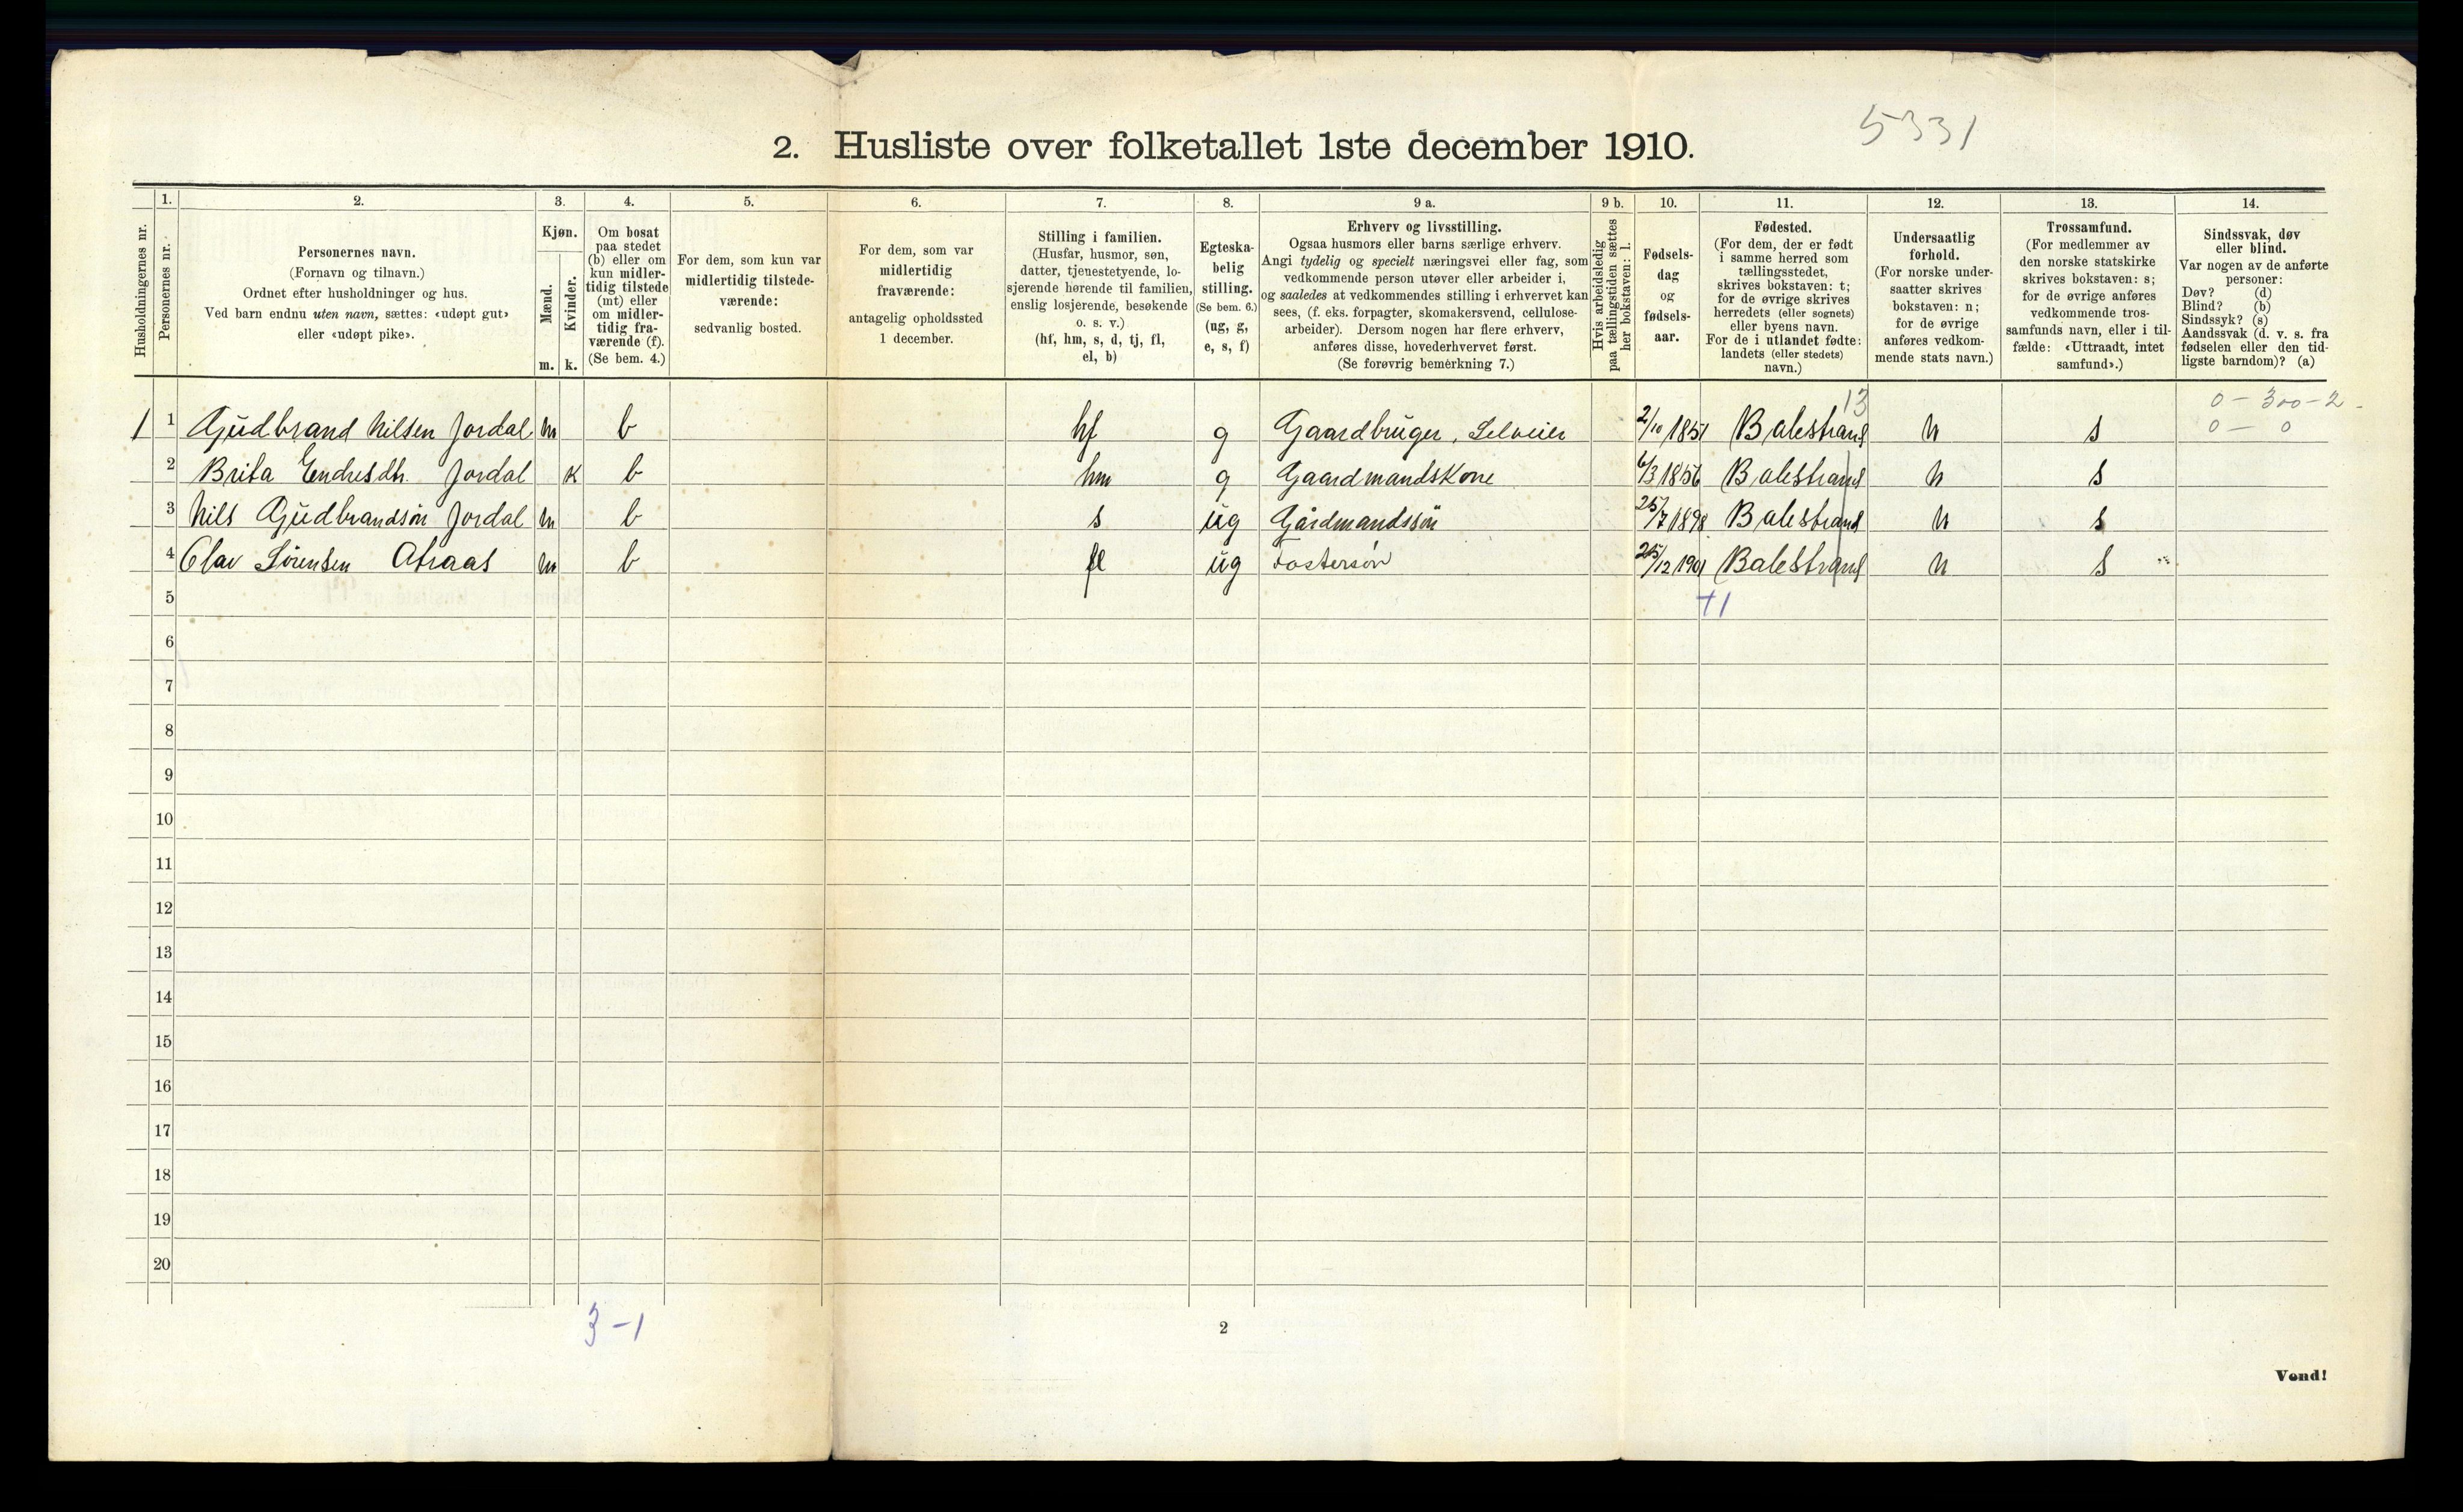 5331
2. Husliste over folketallet 1ste december 1910.
Husholdningernes nr.
1.
Personernes nr.
2.
Personernes navn.
(Fornavn og tilnavn.)
Ordnet efter husholdninger og hus.
Ved barn endnu uten navn, sættes: «udøpt gut»
eller «udøpt pike».
3.
Kjøn.
Mænd.
m.
Kvinder.
k.
4.
Om bosat
paa stedet
(b) eller om
kun midler-
tidig tilstede
(mt) eller
om midler-
tidig fra-
værende (f).
(Se bem. 4.)
5.
For dem, som kun var
midlertidig tilstede-
værende:
sedvanlig bosted.
6.
For dem, som var
midlertidig
fraværende:
antagelig opholdssted
1 december.
7.
Stilling i familien.
(Husfar, husmor, søn,
datter, tjenestetyende, lo-
sjerende hørende til familien,
enslig losjerende, besøkende
o. s. v.)
(hf, hm, s, d, tj, fl,
el, b)
8.
Egteska-
belig
stilling.
(Se bem. 6.)
(ug, g,
e, s, f)
9 a.
Erhverv og livsstilling.
Ogsaa husmors eller barns særlige erhverv.
Angi tydelig og specielt næringsvei eller fag, som
vedkommende person utøver eller arbeider i,
og saaledes at vedkommendes stilling i erhvervet kan
sees, (f. eks. forpagter, skomakersvend, cellulose-
arbeider). Dersom nogen har flere erhverv,
anføres disse, hovederhvervet først.
(Se forøvrig bemerkning 7.)
9 b.
Hvis arbeidsledig
paa tællingstiden sættes
her bokstaven: l.
10.
Fødsels-
dag
og
fødsels-
aar.
11.
Fødested.
(For dem, der er født
i samme herred som
tællingsstedet,
skrives bokstaven: t;
for de øvrige skrives
herredets (eller sognets)
eller byens navn.
For de i utlandet fødte:
landets (eller stedets)
navn.)
12.
Undersaatlig
forhold.
(For norske under-
saatter skrives
bokstaven: n;
for de øvrige
anføres vedkom-
mende stats navn.)
13.
Trossamfund.
(For medlemmer av
den norske statskirke
skrives bokstaven: s;
for de øvrige anføres
vedkommende tros-
samfunds navn, eller i til-
fælde: «Uttraadt, intet
samfund».)
14.
Sindssvak, døv
eller blind.
Var nogen av de anførte
personer:
Døv? (d)
Blind? (b)
Sindssyk? (s)
Aandssvak (d. v. s. fra
fødselen eller den tid-
ligste barndom)? (a)
13 0 – 300 – 2
1 1 Gudbrand Nilsen Jordal m b hf g Gaardbruger, Selveier 2/10 1851 Balestrand n s 0 – 0
2 Brita Endresdtr. Jordal k b hm g Gaardmandskone 6/3 1856 Balestrand n s
3 Nils Gudbrandsøn Jordal m b s ug Gårdmandssøn 25/7 1898 Balestrand n s
4 Olav Sørensen Atraas m b fl ug Fostersøn 25/12 1901 Balestrand n s
5 +1
6
7
8
9
10
11
12
13
14
15
16
17
18
19
20
3 – 1
2
Vend!